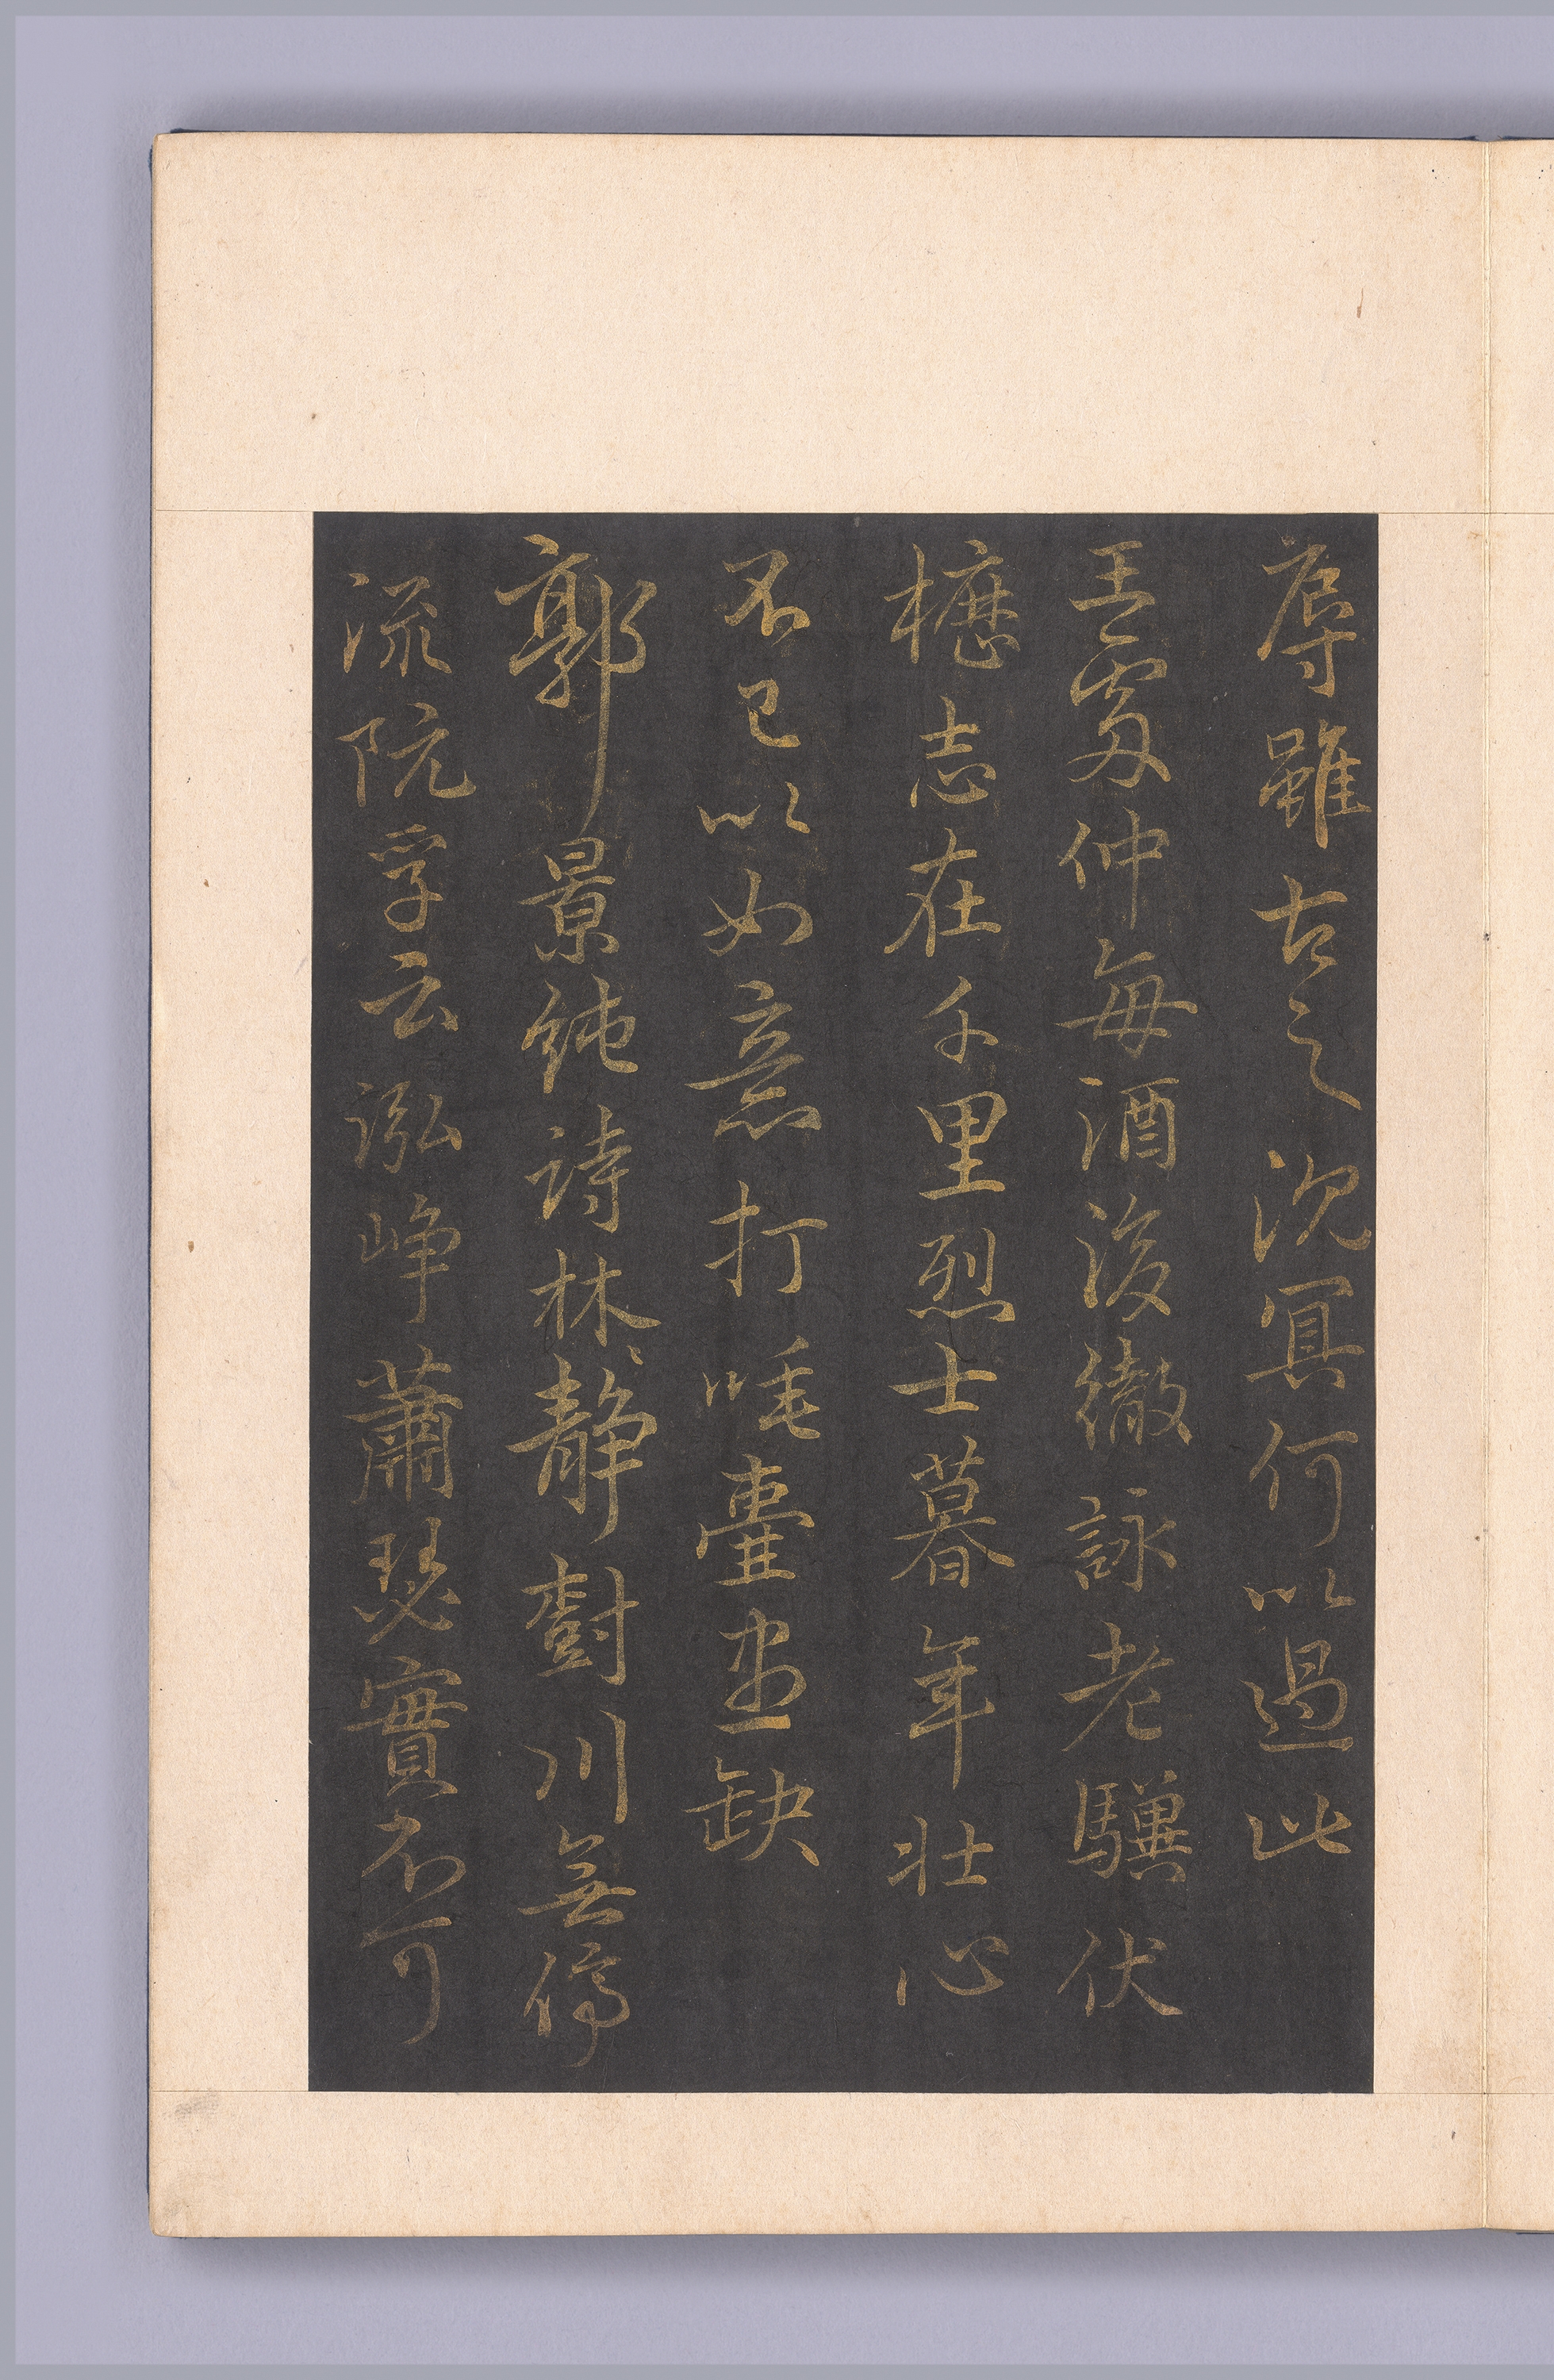 辱雖古之沈冥何以過此
王處仲每酒後徹詠老驥伏
櫪志在千里烈士暮年壯心
不已以如意打唾壺盡缺
郭景純詩林静樹川無停
流阮孚云泓崢蕭瑟實不可